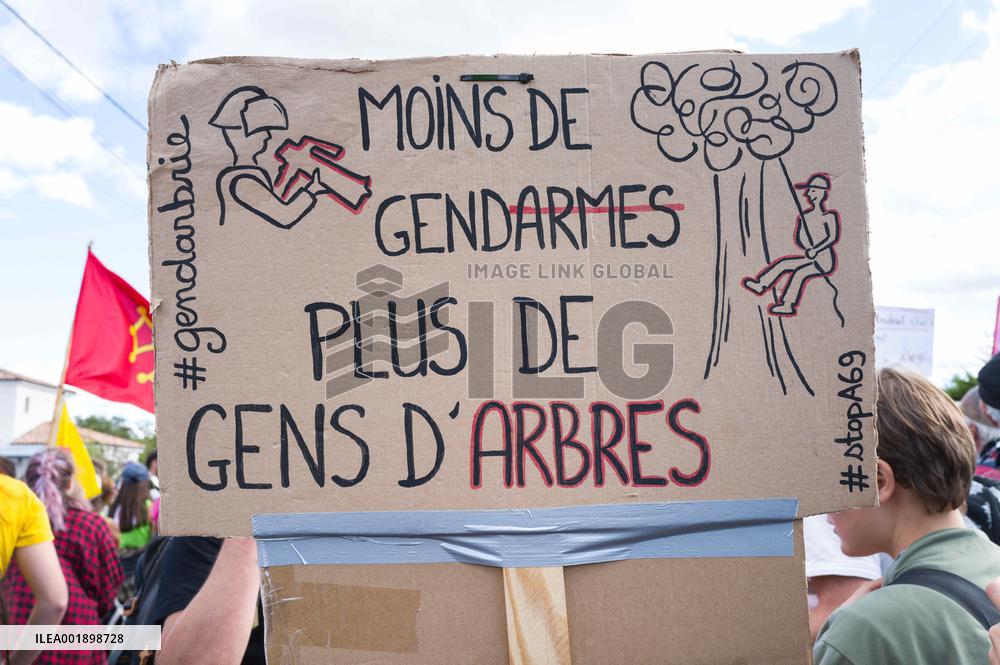 MOiNS DE
GENDARMES
PLUS DE
GENS D'ARBRES
#gendarbrie
#stopA69
IMAGE LINK GLOBAL
ILG
ILEA001898728